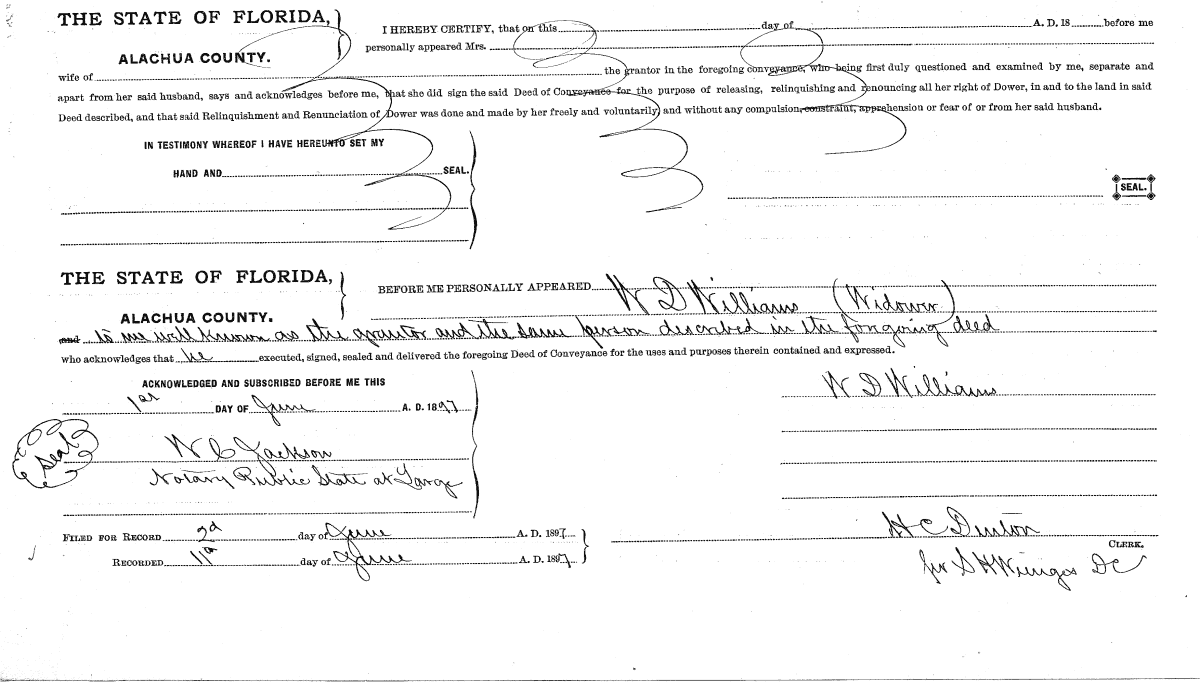 THE STATE OF FLORIDA,
ALACHUA COUNTY.
I HEREBY CERTIFY, that on this day of A. D. 18 before me
personally appeared Mrs.
wife of the grantor in the foregoing conveyance, who being first duly questioned and examined by me, separate and
apart from her said husband, says and acknowledges before me, that she did sign the said Deed of Conveyance for the purpose of releasing, relinquishing and renouncing all her right of Dower, in and to the land in said
Deed described, and that said Relinquishment and Renunciation of Dower was done and made by her freely and voluntarily, and without any compulsion, constraint, apprehension or fear of or from her said husband.
IN TESTIMONY WHEREOF I HAVE HEREUNTO SET MY
HAND AND SEAL.
SEAL.
THE STATE OF FLORIDA,
ALACHUA COUNTY.
BEFORE ME PERSONALLY APPEARED W D Williams (Widower)
and to me well known as the grantor and the same person described in the forgoing deed
who acknowledges that he executed, signed, sealed and delivered the foregoing Deed of Conveyance for the uses and purposes therein contained and expressed.
ACKNOWLEDGED AND SUBSCRIBED BEFORE ME THIS
1st DAY OF June A. D. 1897
W D Williams
Seal
W C Jackson
Notary Public State at Large
FILED FOR RECORD 2d day of June A. D. 1897
H C Denton
CLERK.
RECORDED 11th day of June A. D. 1897
per S H Wienges DC